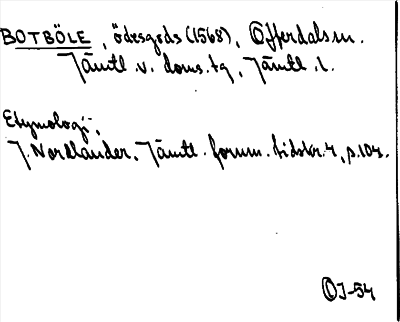 BOTBÖLE, ödesgods (1568), Offerdals sn.
Jämtl. v. doms. tg, Jämtl. l.
Etymologi,
J. Nordlander, Jämtl. fornm. tidskr. 4, p. 104.
OJ-54